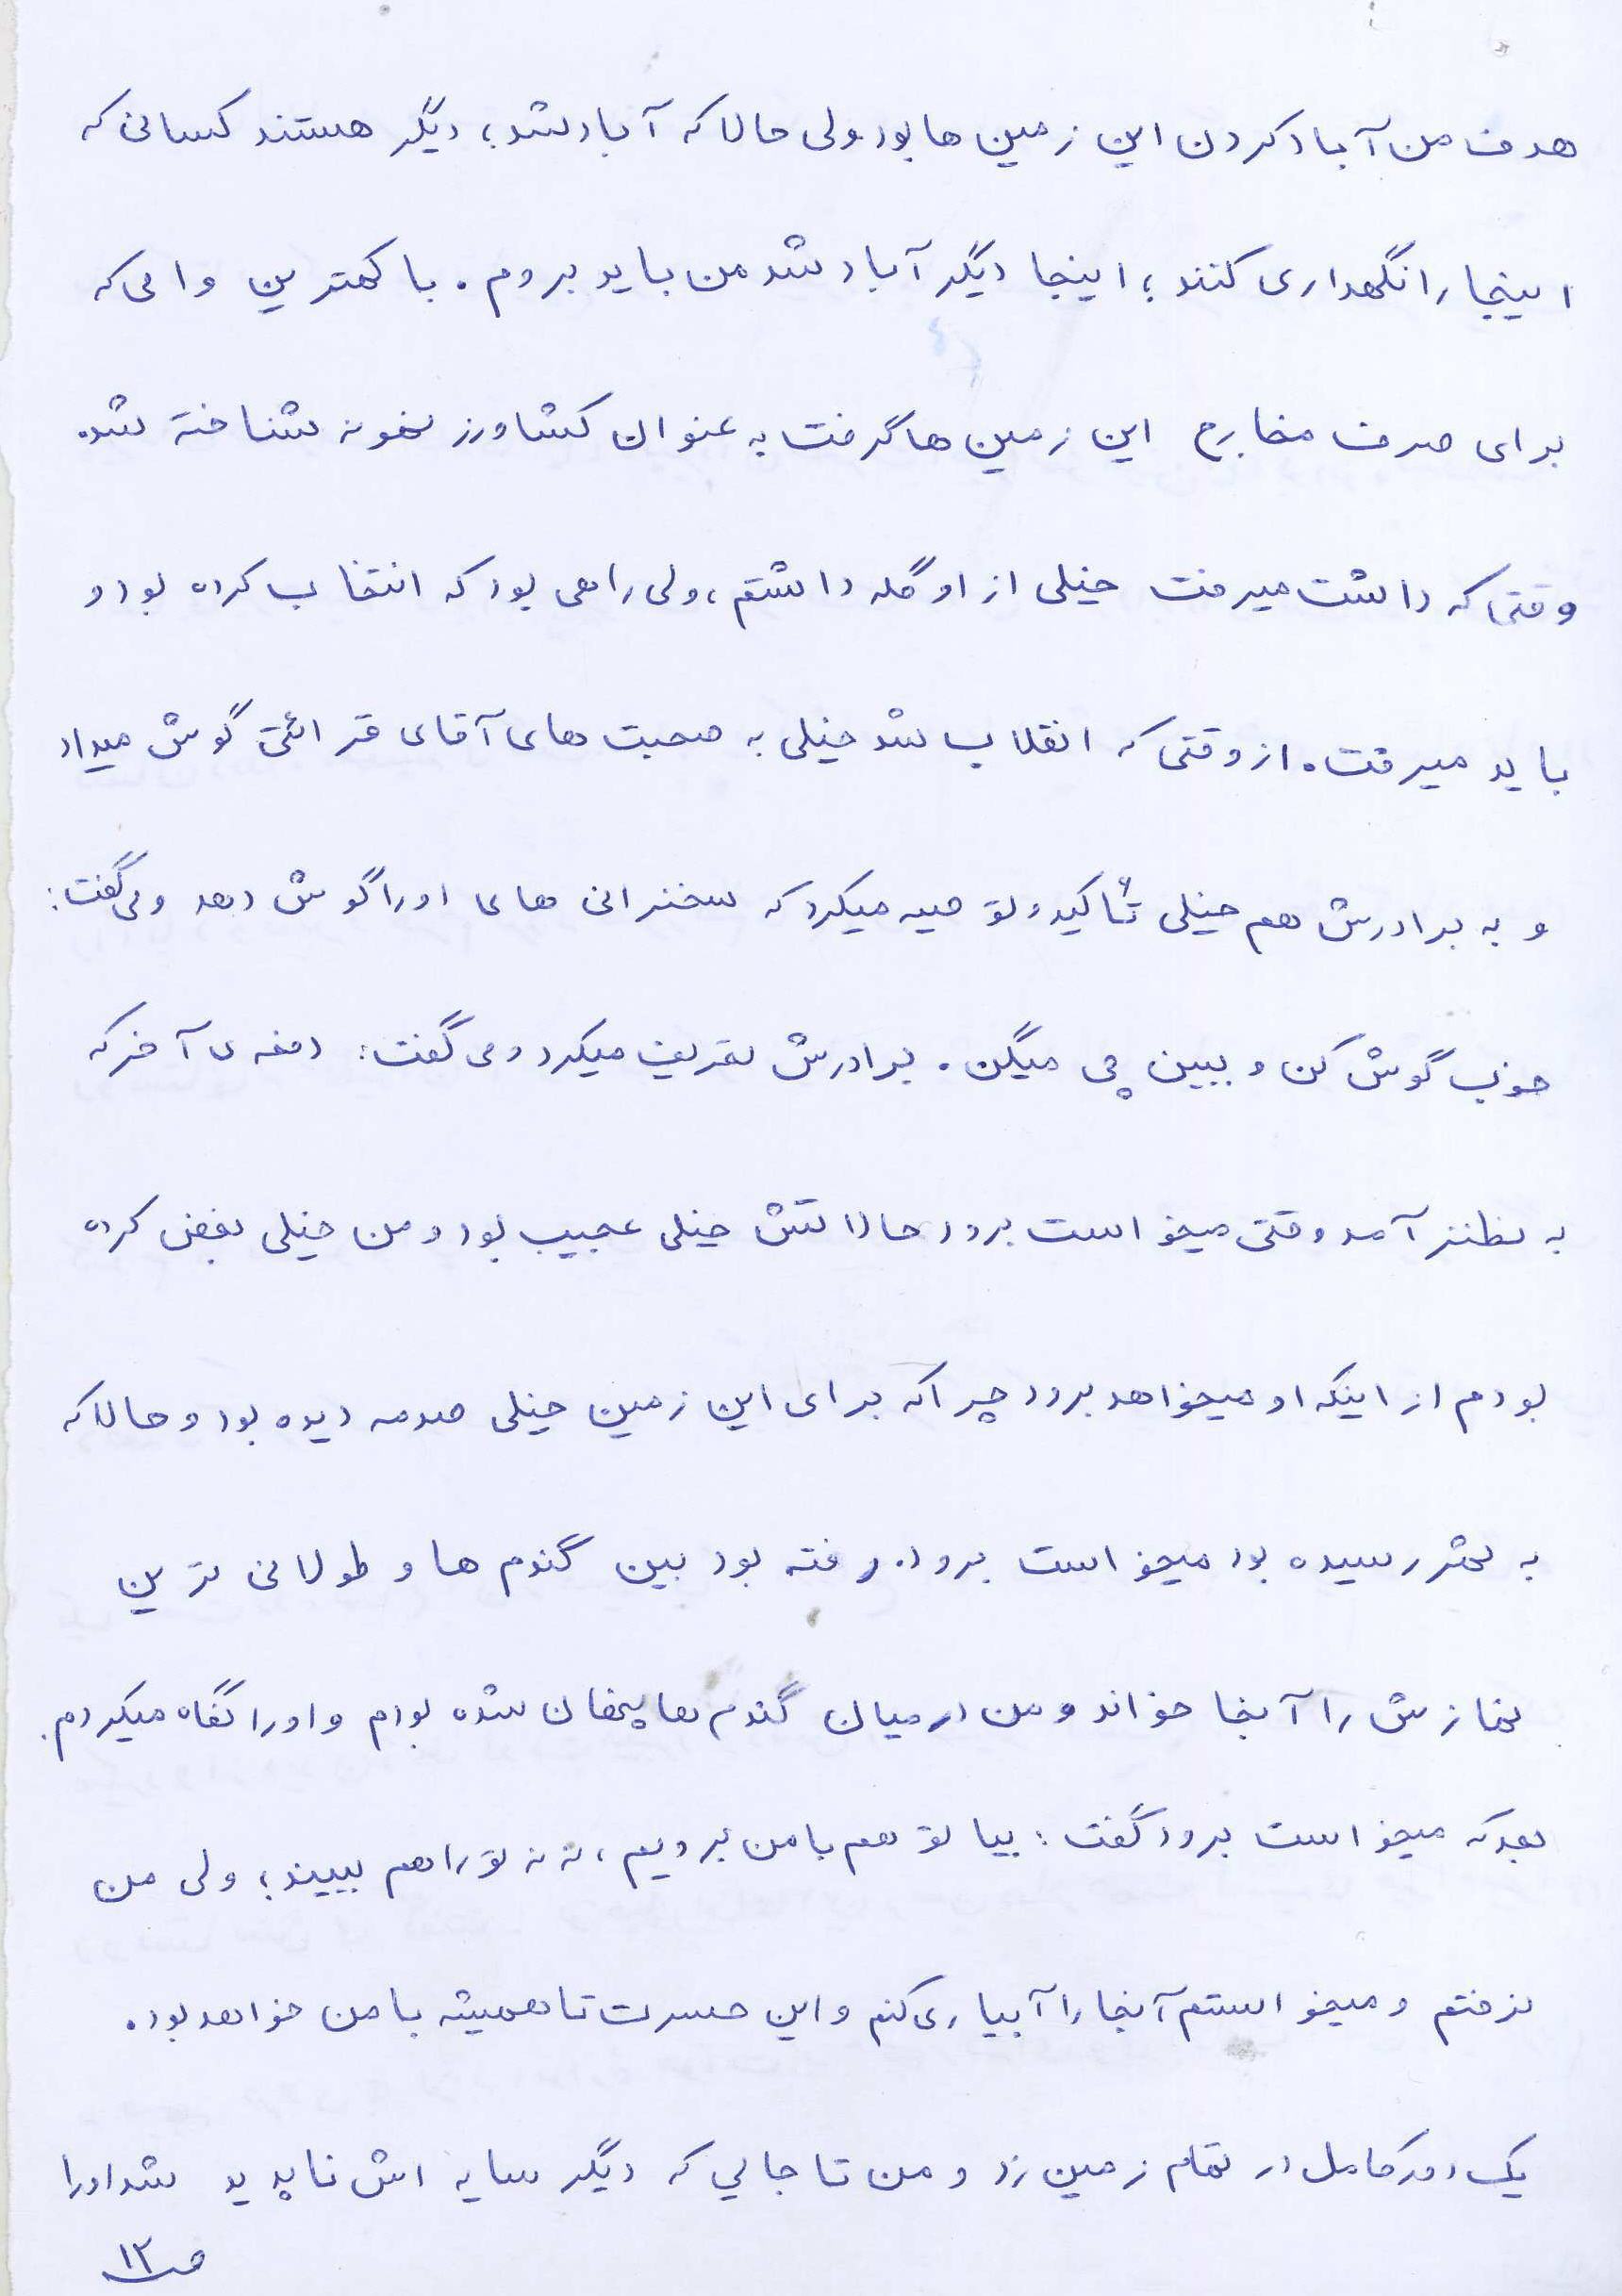 هدف من آباد کردن این زمین ها بود ولی حالا که آباد شد؛ دیگر هستند کسانی که
اینجا را نگهداری کنند؛ اینجا دیگر آباد شد من باید بروم. با کمترین وامی که
برای صرف مخارج این زمین ها گرفت به عنوان کشاورز نمونه شناخته شد.
وقتی که داشت میرفت خیلی از او گله داشتم، ولی راهی بود که انتخاب کرده بود و
باید میرفت. از وقتی که انقلاب شد خیلی به صحبت های آقای قرائتی گوش میداد
و به برادرش هم خیلی تأکید و توصیه میکرد که سخنرانی های او را گوش دهد و می گفت:
خوب گوش کن و ببین چی میگن. برادرش تعریف میکرد و می گفت: دفعه ی آخر که
به نطنز آمد وقتی میخواست برود حالاتش خیلی عجیب بود و من خیلی بغض کرده
بودم از اینکه او میخواهد برود چرا که برای این زمین خیلی صدمه دیده بود و حالا که
به ثمر رسیده بود میخواست برود. رفته بود بین گندم ها و طولانی ترین
نمازش را آنجا خواند و من در میان گندم ها پنهان شده بودم و او را نگاه میکردم.
بعد که میخواست برود گفت: بیا تو هم با من برویم، ننه تو را هم ببیند؛ ولی من
نرفتم و میخواستم آنجا را آبیاری کنم و این حسرت تا همیشه با من خواهد بود.
یک دور کامل در تمام زمین زد و من تا جایی که دیگر سایه اش ناپدید شد او را
ص۱۲